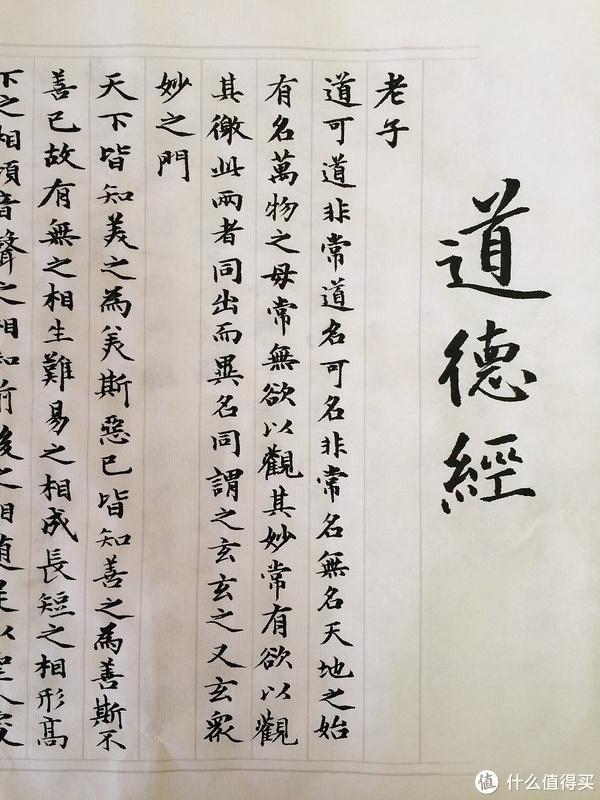 道德經
老子
道可道非常道名可名非常名無名天地之始
有名萬物之母常無欲以觀其妙常有欲以觀
其徼此兩者同出而異名同謂之玄玄之又玄衆
妙之門
天下皆知美之為美斯惡已皆知善之為善斯不
善已故有無之相生難易之相成長短之相形高
下之相傾音聲之相和前後之相隨是以聖人
值 什么值得买